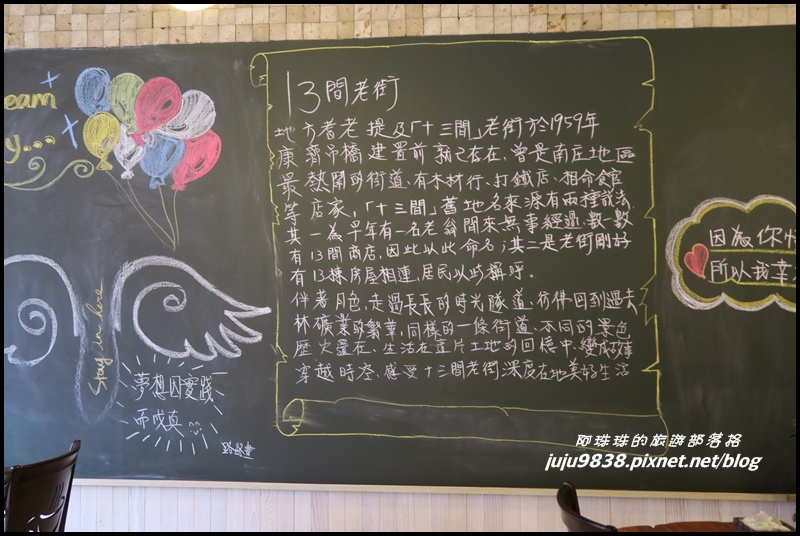 eam
y...
13間老街
地方耆老提及「十三間」老街於1959年
康濟吊橋建置前就已存在、曾是南庄地區
最熱鬧的街道、有木材行、打鐵店、相命食館
等店家,「十三間」舊地名來源有兩種說法
其一為早年有一名老翁閒來無事經過、數一數
有13間商店,因此以此命名;其二是老街剛好
有13棟房屋相連,居民以此稱呼。
伴著月色、走過長長的時光隧道、彷彿回到過去
林礦業的繁華,同樣的一條街道、不同的景色
歷史還在、生活在這片土地的回憶中、變成故事
穿越時空、感受十三間老街深度在地美好生活
因為你
所以我幸
Stay in here
夢想因實踐
而成真
阿珠珠的旅遊部落格
juju9838.pixnet.net/blog